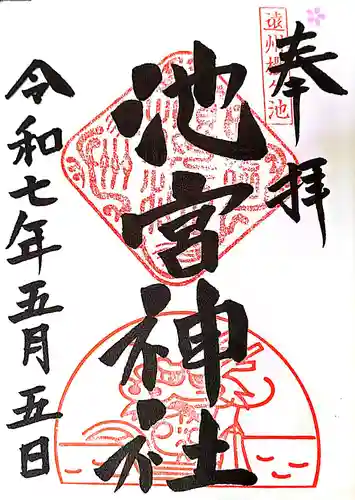 奉拝
遠州桜ヶ池
池宮神社
令和七年五月五日